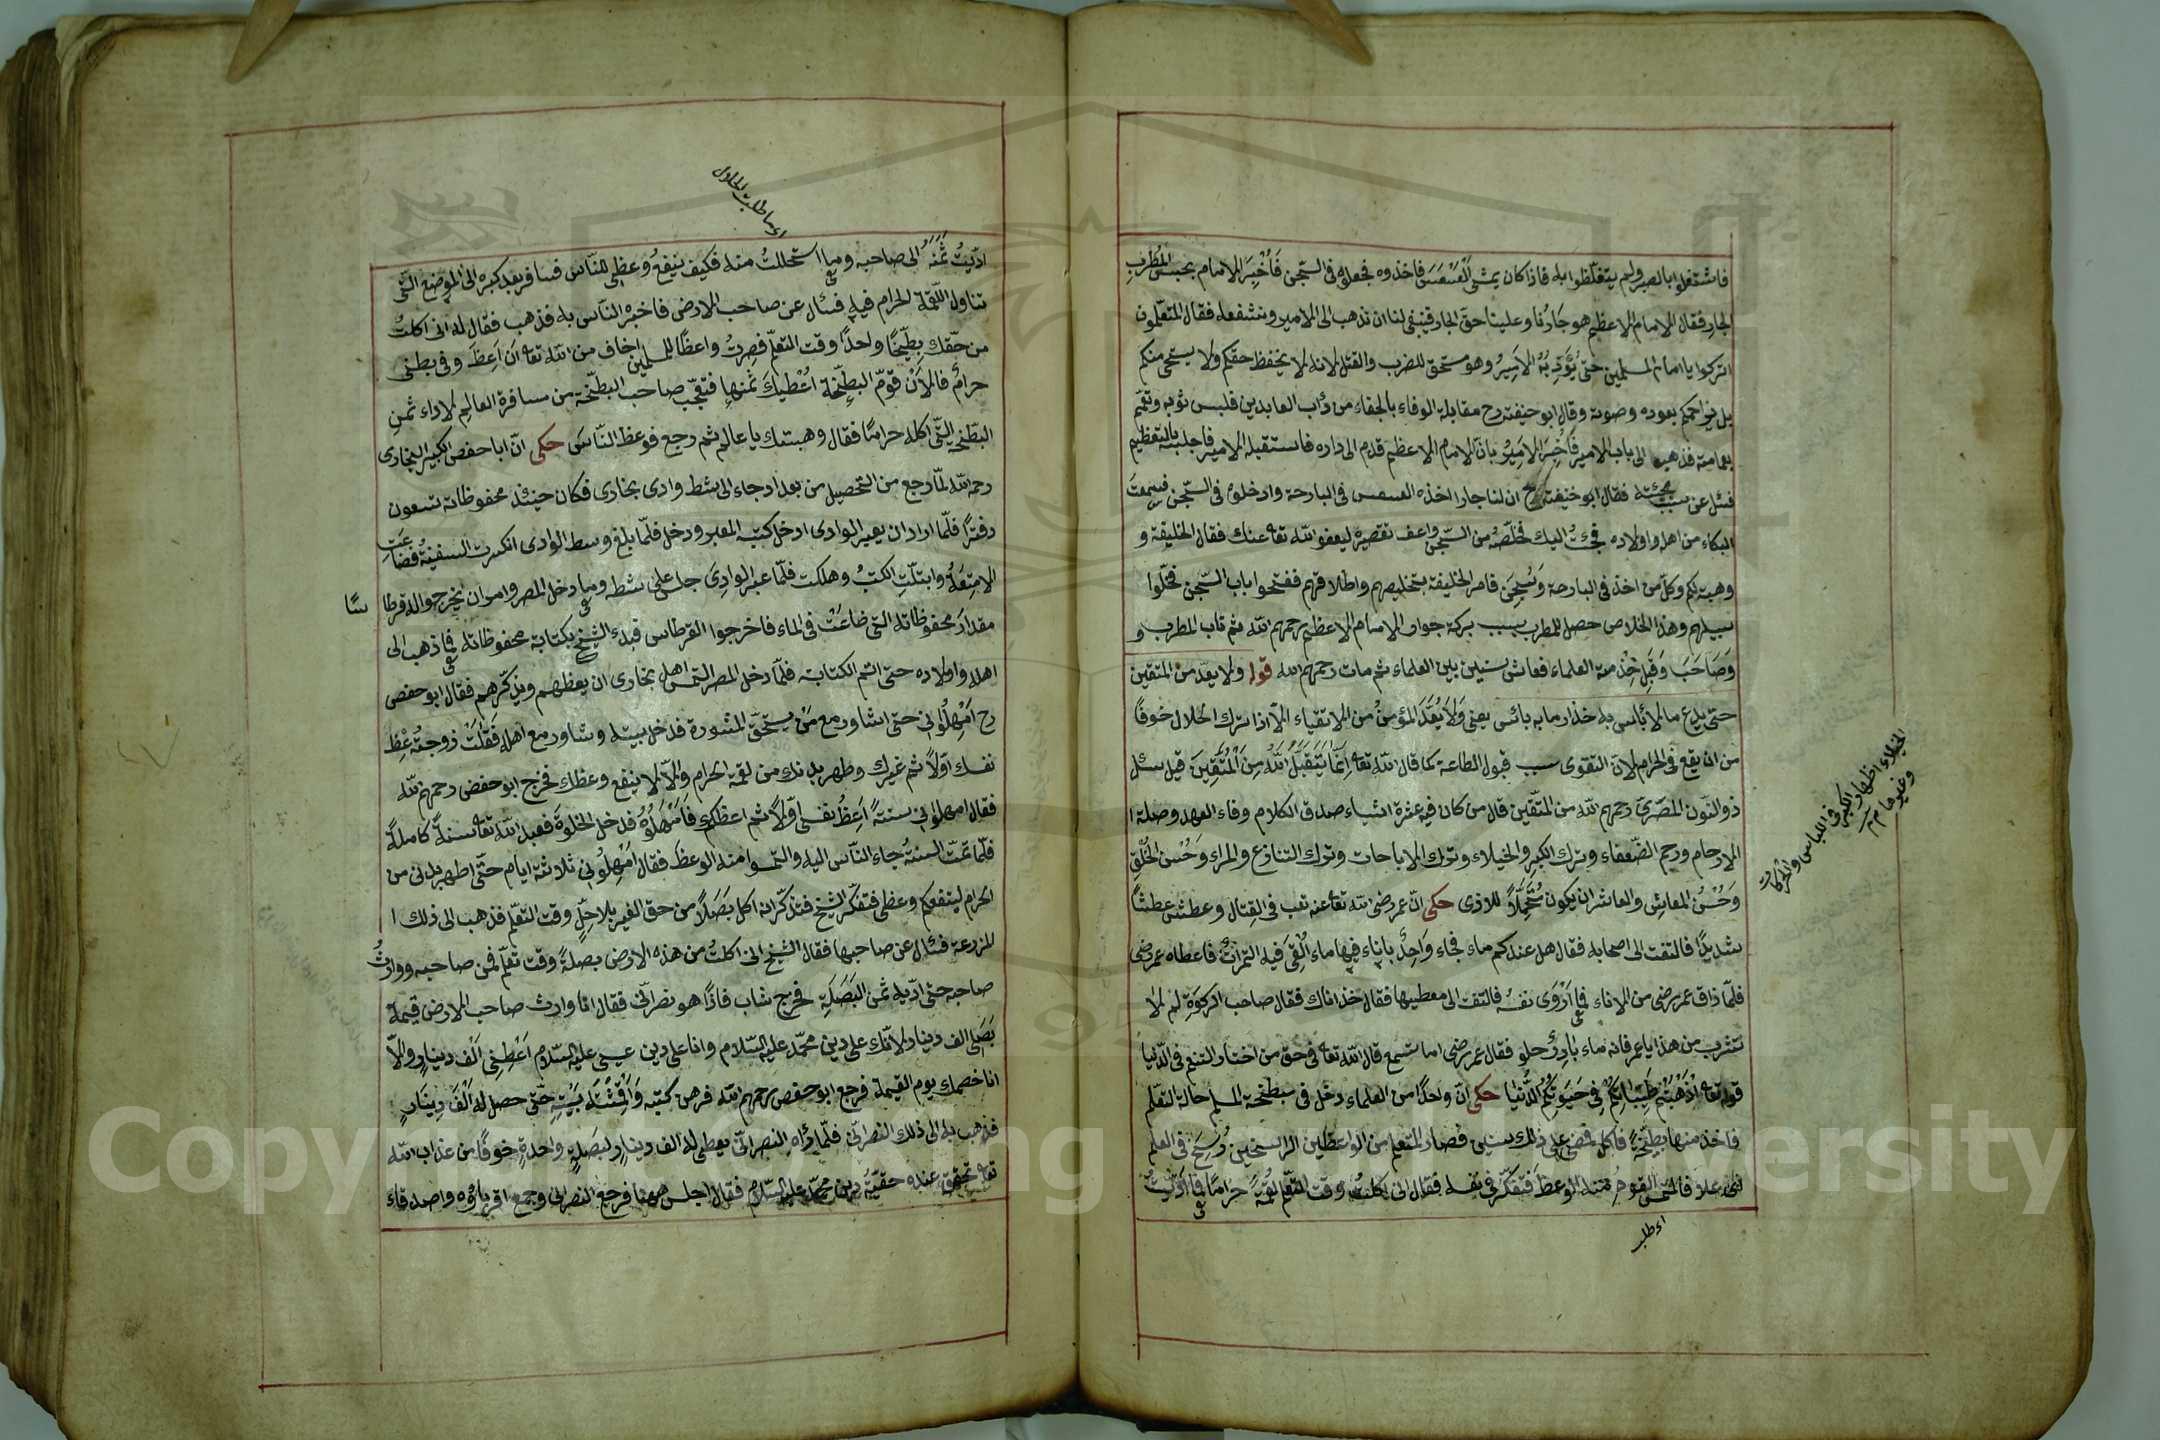 فاشتغلوا بالصبر ولم يتغلّظوا به فاذا كان يمشى العسس فاخذوه فجعلوه فى السّجن فَأُخْبِرَ الامام بحبس المُطْرِبِ
الجار فقال الامام الاعظم هو جارُنا وعلينا حقّ الجار فينبغى لنا ان نذهب الى الامير ونشفعه فقال المتعلّمون
اتركوا يا امام المسلمين حتى يُؤَدِّبُهُ الامير وهو مستحق للضرب والقتل لانه لا يحفظ حقكم ولا يستحى منكم
بل يزاحمكم بعوده وصوته وقال ابو حنيفة رح مقابلة الوفاء بالجفاء من دأب العابدين فلبس ثوبه وتعمّم
بعمامته فذهب الى باب الامير فَأُخْبِرَ الامير بانّ الامام الاعظم قدم الى داره فاستقبله الامير فاجلسه بالتعظيم
فسئل عن سبب مجيئه فقال ابو حنيفة رح ان لنا جارا اخذه العسس فى البارحة وادخلوه فى السّجن فسمعتُ
البكاء من اهله واولاده فجئتُ اليك فخلّصْهُ من السّجن واعف تقصيره ليعفو الله تعا عنك فقال الخليفة و
وهبته لكم وكلّ من اخذ فى البارحة وسُجِنَ فامر الخليفة بتخليصهم واطلاقهم ففتحوا باب السّجن فخلّوا
سبيلهم وهذا الخلاص حصل للمطرب بسبب بركة جوار الامام الاعظم رحمهم الله ثم تاب المطرب و
وَصَاحَبَ وَقَبِلَ خدمة العلماء فعاش سنين بين العلماء ثم مات رحمهم الله قوله ولا يعدّ من المتقين
حتى يدع ما لا بأس به حذار ما به بائس يعنى وَلَا يُعَدُّ المؤمنُ من الاتقياء الّا اذا ترك الحلال خوفًا
من ان يقع فى الحرام لانّ التقوى سبب قبول الطاعة كما قال الله تعا اِنَّمَا يَتَقَبَّلُ اللّٰهُ مِنَ الْمُتَّقِينَ قيل سئل
ذو النّون المصرىّ رحمهم الله من المتّقين قال من كان فيه عشرة اشياء صدق الكلام وفاء العهد وصلة ا
الارحام ورحم الضّعفاء وترك الكبر والخيلاء وترك الاباحات وترك التنازع والمراء وَحُسْنُ الخُلْقِ
وَحُسْنُ المعاش والعاشر ان يكون مُتَحَمِّلًا للاذى حكى انّ عمر رضى الله تعا عنه تعب فى القتال وعطش عطشًا
شديدًا فالتفت الى اصحابه فقال هل عندكم ماء فجاء وَاحِدٌ باِناءٍ فيها ماء اُلْقِىَ فيه التمرات فاعطاه عمر رضى
فلمّا ذاق عمر رضى من الاناء فما اَرْوَى نفسه فالتفت الى معطيها فقال خذ اناك فقال صاحب الركوة لم لا
تشرب من هذا يا عمر فانه ماء بارد حلو فقال عمر رضى اما تسمع قال الله تعا فى حق من اختار التنعم فى الدّنيا
قوله تعا اَذْهَبْتُمْ طَيِّبَاتِكُمْ فِى حَيَوتِكُمُ الدُّنْيَا حكى انّ واحدًا من العلماء دخل فى مبطخة المسلم حالة التعلّم
فاخذ منها بطّيخة فاكل فمضى على ذلك سنين فصار المتعلم من الواعظين الراسخين رُسِخَ فى العلم
فالتمس القوم منه الوعظ فتفكّر فى نفسه فقال انى اكلتُ وقت التعلّم لقمةً حرامًا فما اَدّيتُ
اى طلب
الخيلاء اظهار الكبر فى اللباس والحركات
وغيرها م م
اى ما طلبت الحلال
ادّيتُ ثَمَنَهُ الى صاحبه وما استحللتُ منه فكيف ينفعُ وعظى للنّاس فسافر بعد كبره الى الموضع التى
تناول اللّقمة الحرام فيه فسئال عن صاحب الارض فاخبره النّاس به فذهب فقال له انى اكلتُ
من حقّك بطّيخًا واحدًا وقت التعلّم فصرتُ واعظًا للمسلمين اخاف من الله تعا ان اَعِظَ وفى بطنى
حرام فالاٰن قوّم البطّيخة اُعْطِيكَ ثمنها فتعجّب صاحب البطّيخة من مسافرة العالم لاداء ثمن
البطّيخ التى اكله حرامًا فقال وهبتك يا عالم ثم رجع فوعظ النّاسَ حكى انّ ابا حفص الكبير البخارى
رحمه الله لمّا رجع من التحصيل من بغداد جاء الى شط وادى بخارى فكان حينئذ محفوظاته تسعون
دفترًا فلمّا اراد ان يعبر الوادى ادخل كتبه المعبر ودخل فلمّا بلغ وسط الوادى انكسرت السفينة فضاعَت
الامتعة وابتلّت الكتبُ وهلكت فلمّا عبر الوادِىَ جلس على شطه وما دخل المصر وامر ان يخرجوا له قرطا
سًا
مقدارَ محفوظاته التى ضاعَتْ فى الماء فاخرجوا القرطاس فبدء الشيخ بكتابة محفوظاته فما ذهب الى
اهله واولاده حتى اتمّ الكتابة فلمّا دخل المصر التمس اهل بخارى ان يعظهم ويذكّرهم فقال ابو حفص
رح اَمْهِلُوانى حتى اشاور مع مَنْ يستحقّ المشورة فدخل بيته وشاور مع اهله فقالَتْ زوجتُهُ عِظْ
نفسك اوّلًا ثم غيرك وطهر بدنك من لقمة الحرام والّا لا ينفع وعظك فخرج ابو حفص رحمهم الله
فقال امهلوانى سنةً اَعِظُ نفسى اوّلًا ثم اعظكم فَاَمْهَلُوهُ فدخل الخلوة فعبد الله تعا سنة كاملةً
فلمّا تمّت السنةُ جاء النّاس اليه والتمسوا منه الوعظَ فقال اَمْهِلُونى ثلاثة ايام حتّى اطهر بدنى من
الحرام لينفعكم وعظى فتفكّر الشيخ فتذكّر انه اكل بَصَلًا من حق الغير بلا حِلٍّ وقت التعلّم فذهب الى ذلك ا
المزرعة فسئال عن صاحبها فقال الشيخ انى اكلتُ من هذه الارض بصلةً وقت تعلّم فمن صاحبه ووارثُ
صاحبه حتى ادّيه ثمن البَصَلَةِ فخرج شاب فاذًا هو نصرانّى فقال انا وارث صاحب الارض قيمة
بَصَلى الف دينار لانّك على دين محمّد عليه السّلام وانا على دين عيسى عليه السّلام اَعْطِنى اَلْف دينارٍ والّا
انا خصمك يوم القيمة فرجع ابو حفص رحمهم الله فرهن كتبه وَاَقْمِشَةَ بَيْتِهِ حتّى حصل له اَلْفَ دِينَارٍ
فذهب به الى ذلك النصرانى فلمّا رأه النصرانّى يعطى له الف دينارٍ لبصَلةٍ واحدةٍ خوفًا من عذاب الله
تعا تحقق عنده حقيّة دين محمّد عليه السّلام فقال اجلس ههنا فرجع النصرانى وجمع اقرباؤه واصدقاء
Copyright © King Saud University